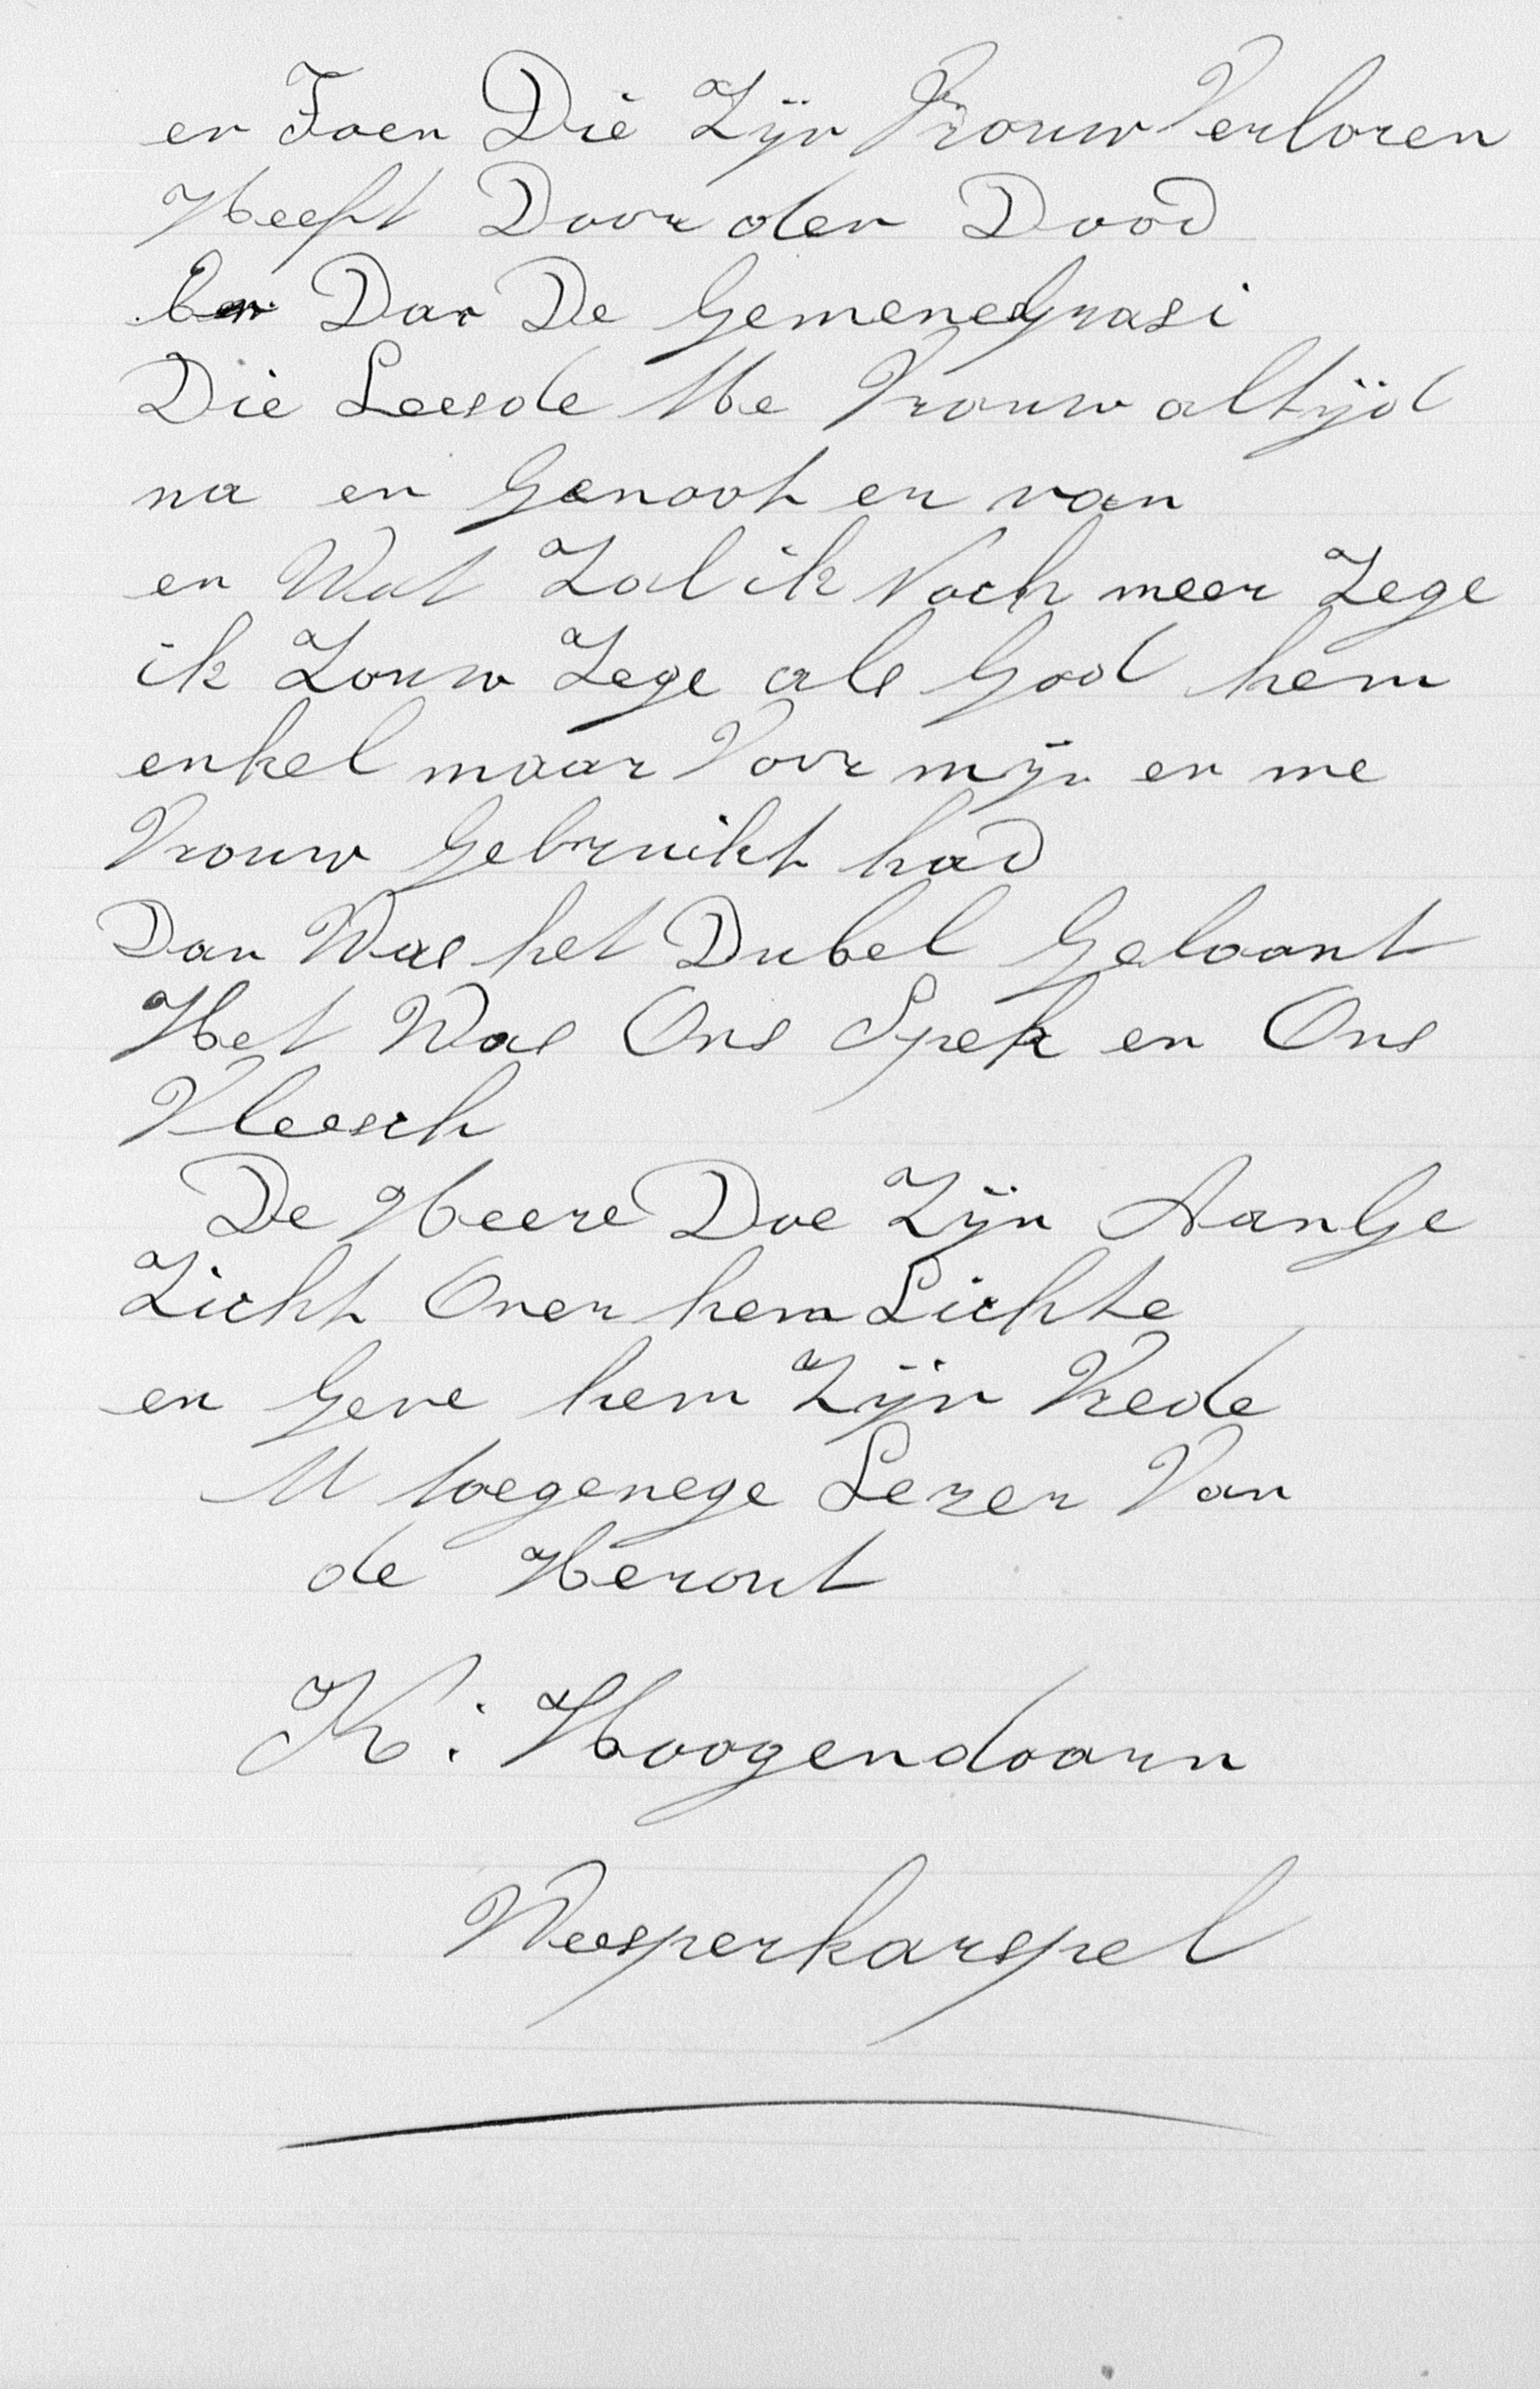 en Toen Die Zijn Vrouw Verloren
Heeft Door den Dood
en Dan De Gemenegrasi
Die Leesde Me Vrouw altijd
na en Genoot er van
en Wat Zal ik Noch meer Zege
ik Zouw Zege als God hem
enkel maar Voor mijn en me
Vrouw Gebruikt had
Dan Was het Dubel Geloont
Het Was Ons Spek en Ons
Vleesch
De Heere Doe Zijn AanGe
Zicht Over hem Lichte
en Geve hem Zijn Vrede
U toegenege Lezer Van
de Herout
K: Hoogendoorn
Weesperkarspel